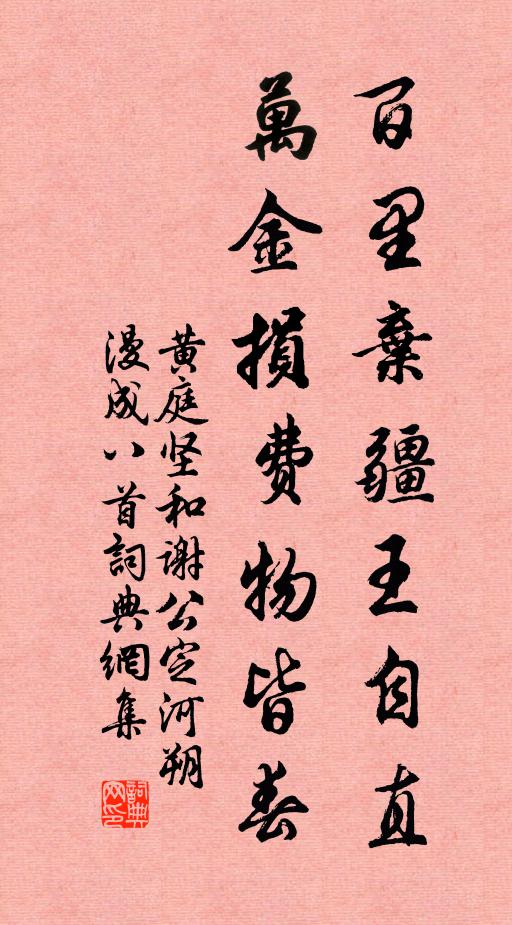 百里棄疆王自直
萬金損費物皆春
黄庭坚和谢公定河朔
漫成八首詞典網集
詞典
网印